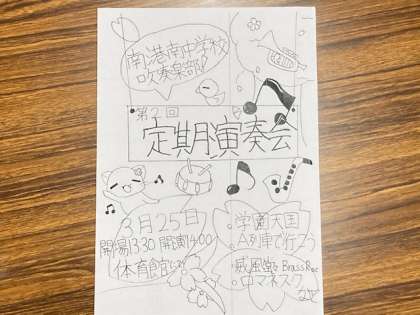 南港南中学校
吹奏楽部!
第2回
定期演奏会
3月25日
開場13:30 開演14:00
体育館にて
・学園天国
・A列車で行こう
・威風堂々 Brass Rock
・ロマネスク
など